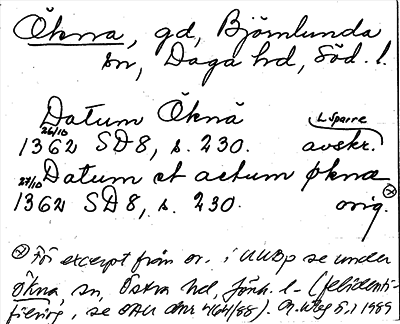 Ökna, gd, Björnlunda
sn, Daga hd, Söd. l.
Datum Öknä L Sparre
26/10
1362 SD8, s. 230. avskr.
27/10 Datum et actum øknæ
1362 SD8, s. 230. orig. ⊗
⊗ För excerpt från or. i UUB se under
Ökna, sn, Östra hd, Jönk. l. (felidenti-
fiering, se OAU dnr 464/88). 1989